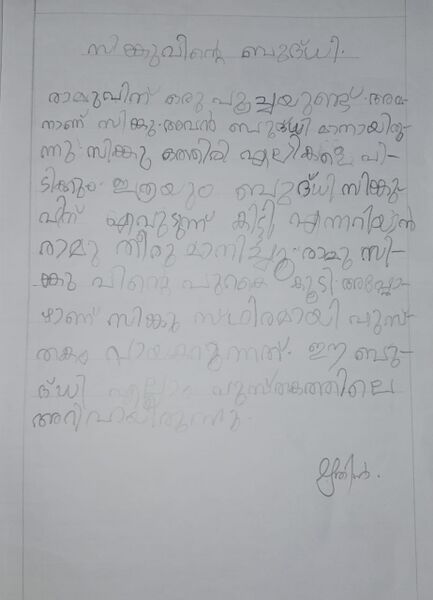 സിങ്കുവിന്റെ ബുദ്ധി.
രാമുവിന് ഒരു പൂച്ചയുണ്ട്. അവ-
നാണ് സിങ്കു. അവൻ ബുദ്ധിമാനായിരു-
ന്നു. സിങ്കു ഒത്തിരി എലികളെ പി-
ടിക്കും. ഇത്രയും ബുദ്ധി സിങ്കു-
വിന് എവിടുന്ന് കിട്ടി എന്നറിയാൻ
രാമു തീരുമാനിച്ചു. രാമു സി-
ങ്കുവിന്റെ പുറകെ കൂടി. അപ്പോ-
ഴാണ് സിങ്കു സ്ഥിരമായി പുസ്-
തകം വായക്കുന്നത്. ഈ ബു-
ദ്ധി എല്ലാം പുസ്തകത്തിലെ
അറിവായിരുന്നു.